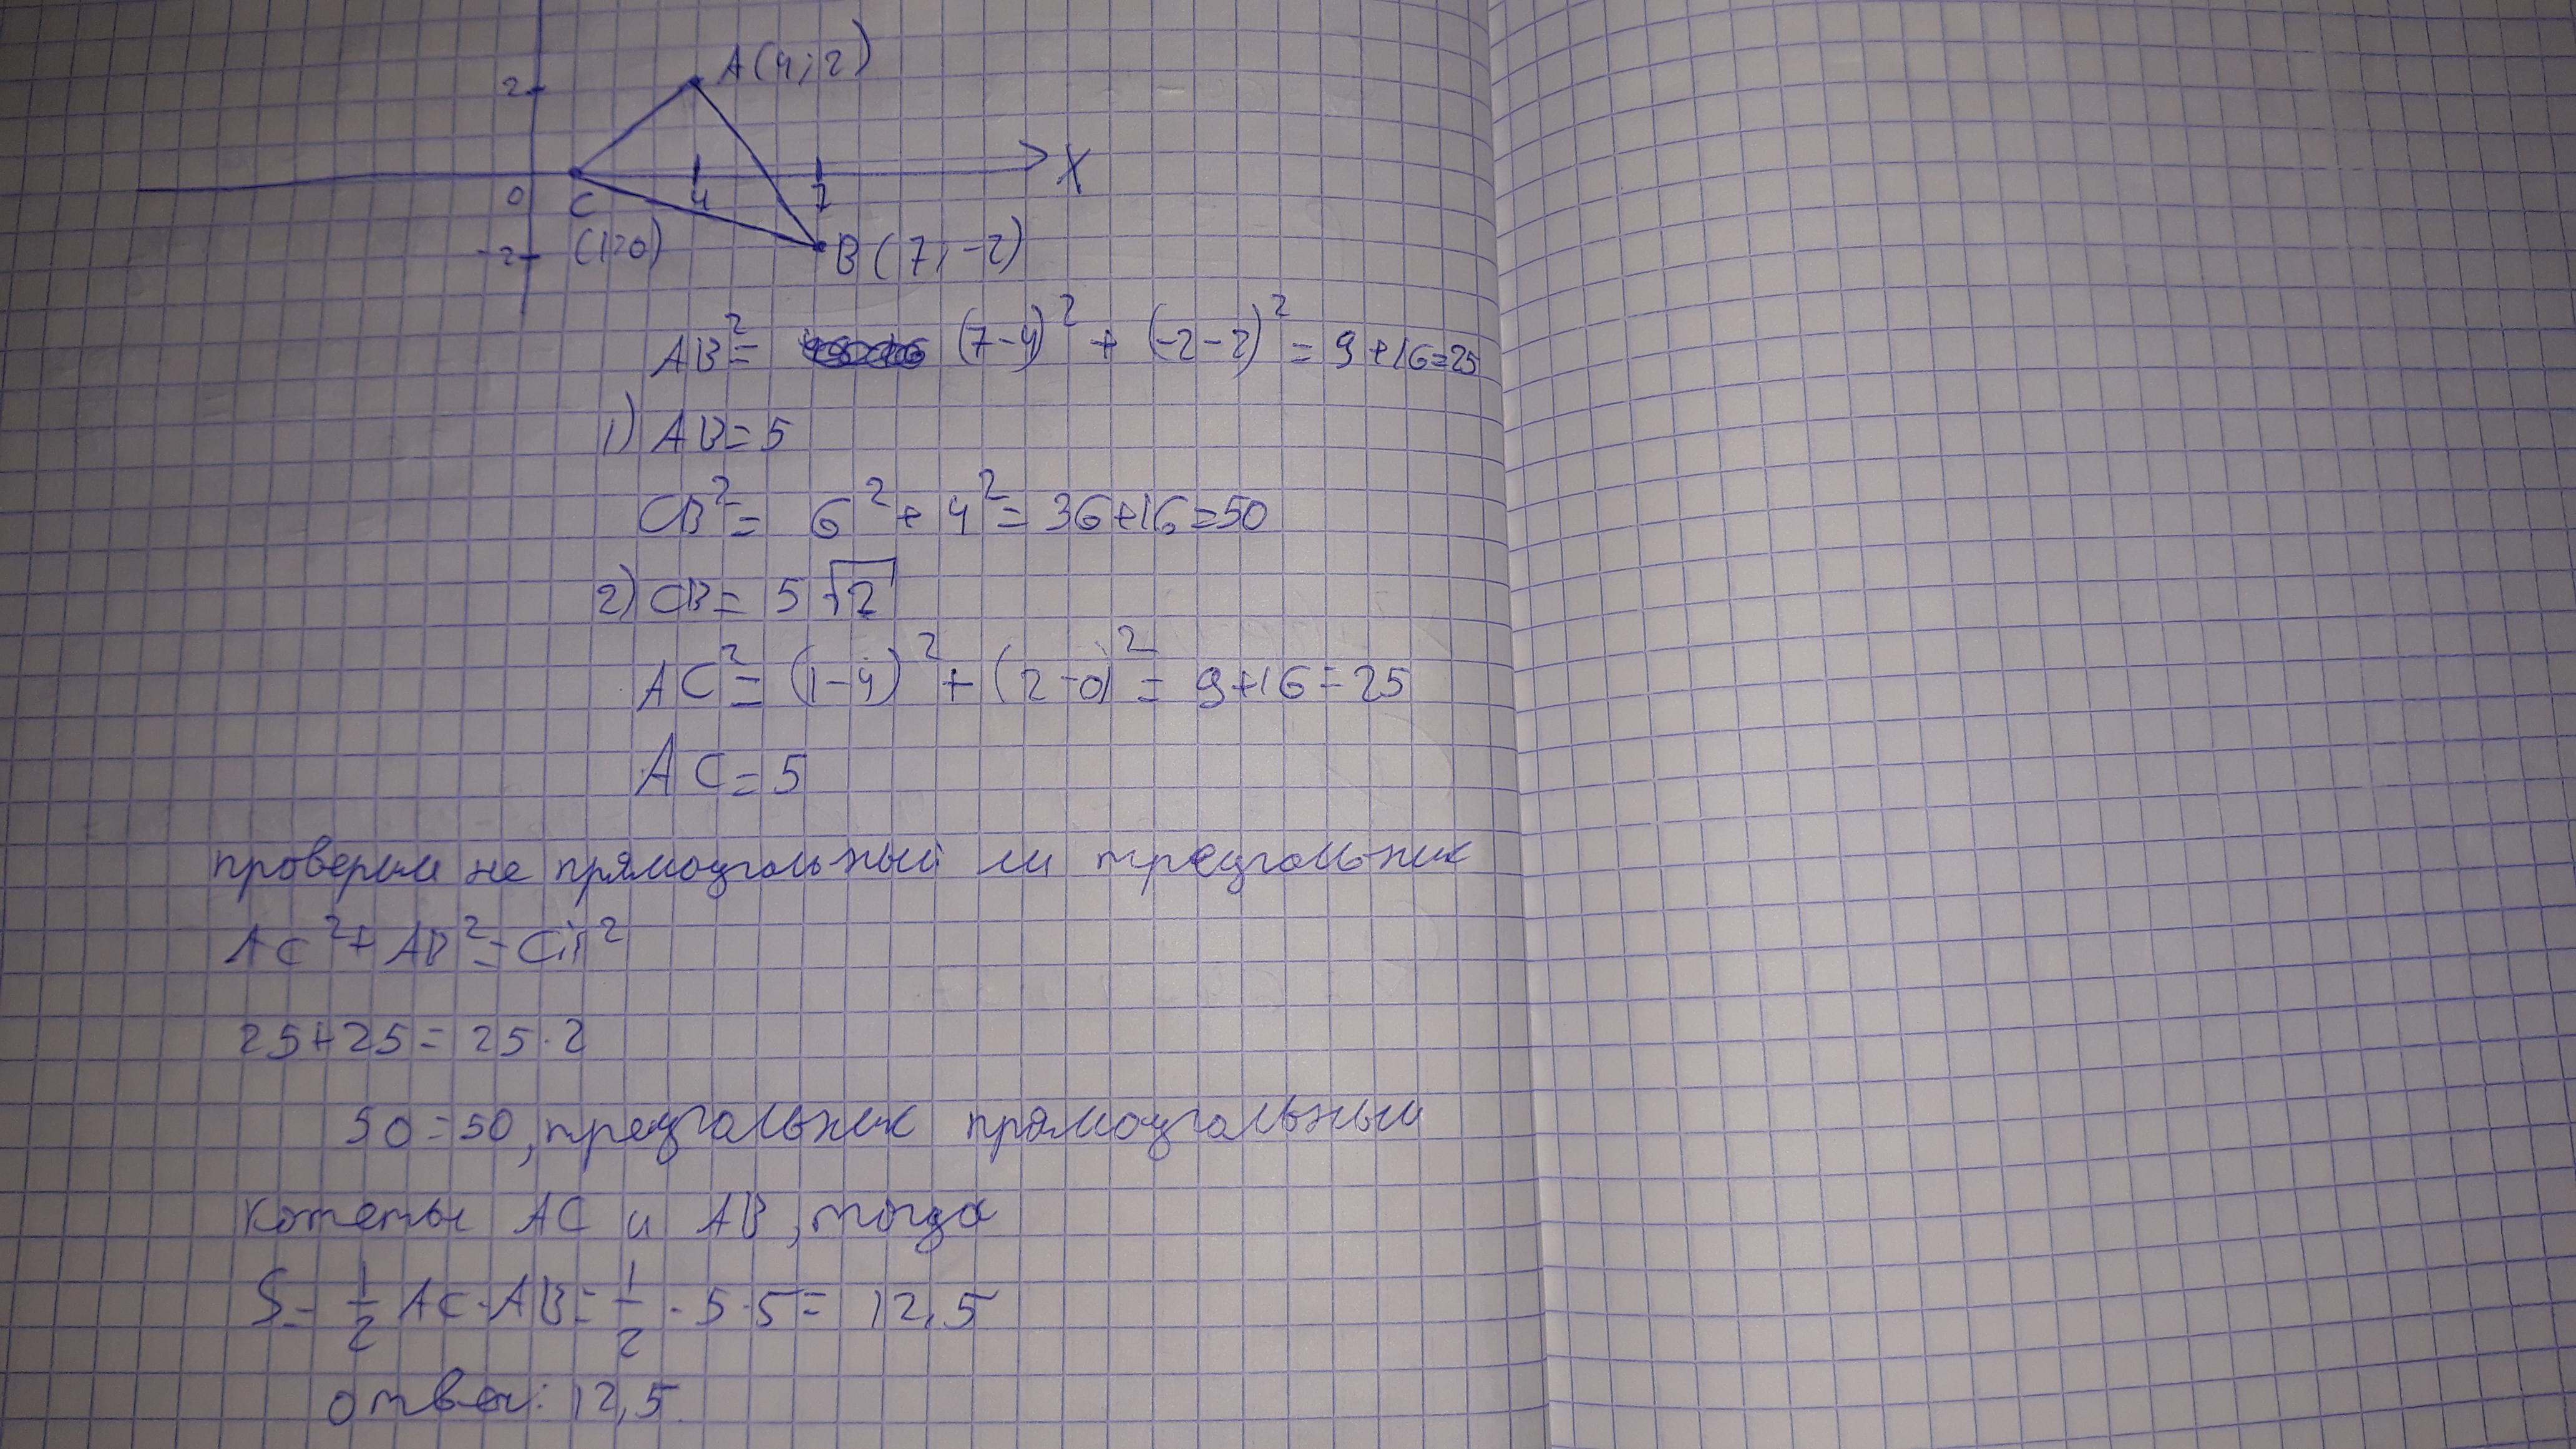 A(4; 2)
2
X
0 C 4 7
(1; 0)
-2
B(7; -2)
AB² = (7-4)² + (-2-2)² = 9+16=25
1) AB=5
CB² = 6² + 4² = 36+16=50
2) CB= 5√2
AC² = (1-4)² + (2-0)² = 9+16=25
AC=5
проверим не прямоугольный ли треугольник
AC² + AB² = CB²
25+25= 25·2
50=50, треугольник прямоугольный
котеты AC и AB, тогда
S= 1/2 AC·AB= 1/2 · 5·5= 12,5
ответ: 12,5.